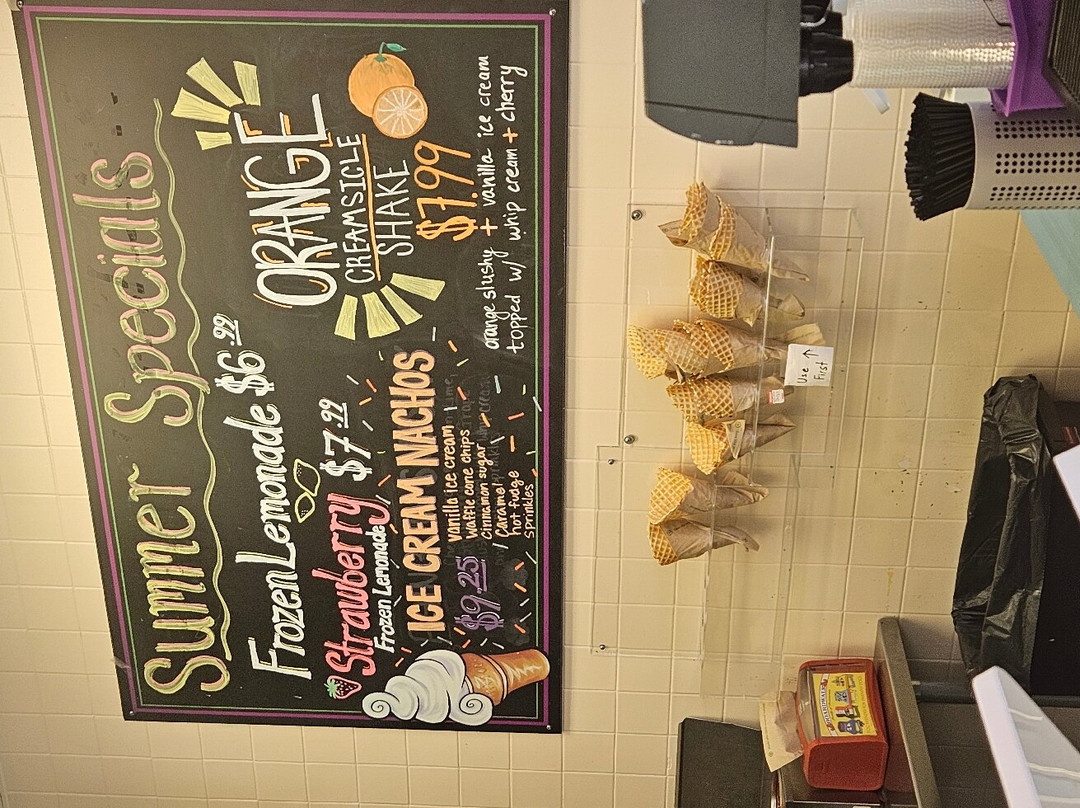 Summer Specials
Frozen Lemonade $6.99
Strawberry $7.99
Frozen Lemonade
ICE CREAM NACHOS
$9.25
vanilla ice cream
waffle cone chips
cinnamon sugar
Caramel
hot fudge
sprinkles
ORANGE
CREAMSICLE
SHAKE
$7.99
orange slushy + vanilla ice cream
topped w/ whip cream + cherry
Use ↑
First